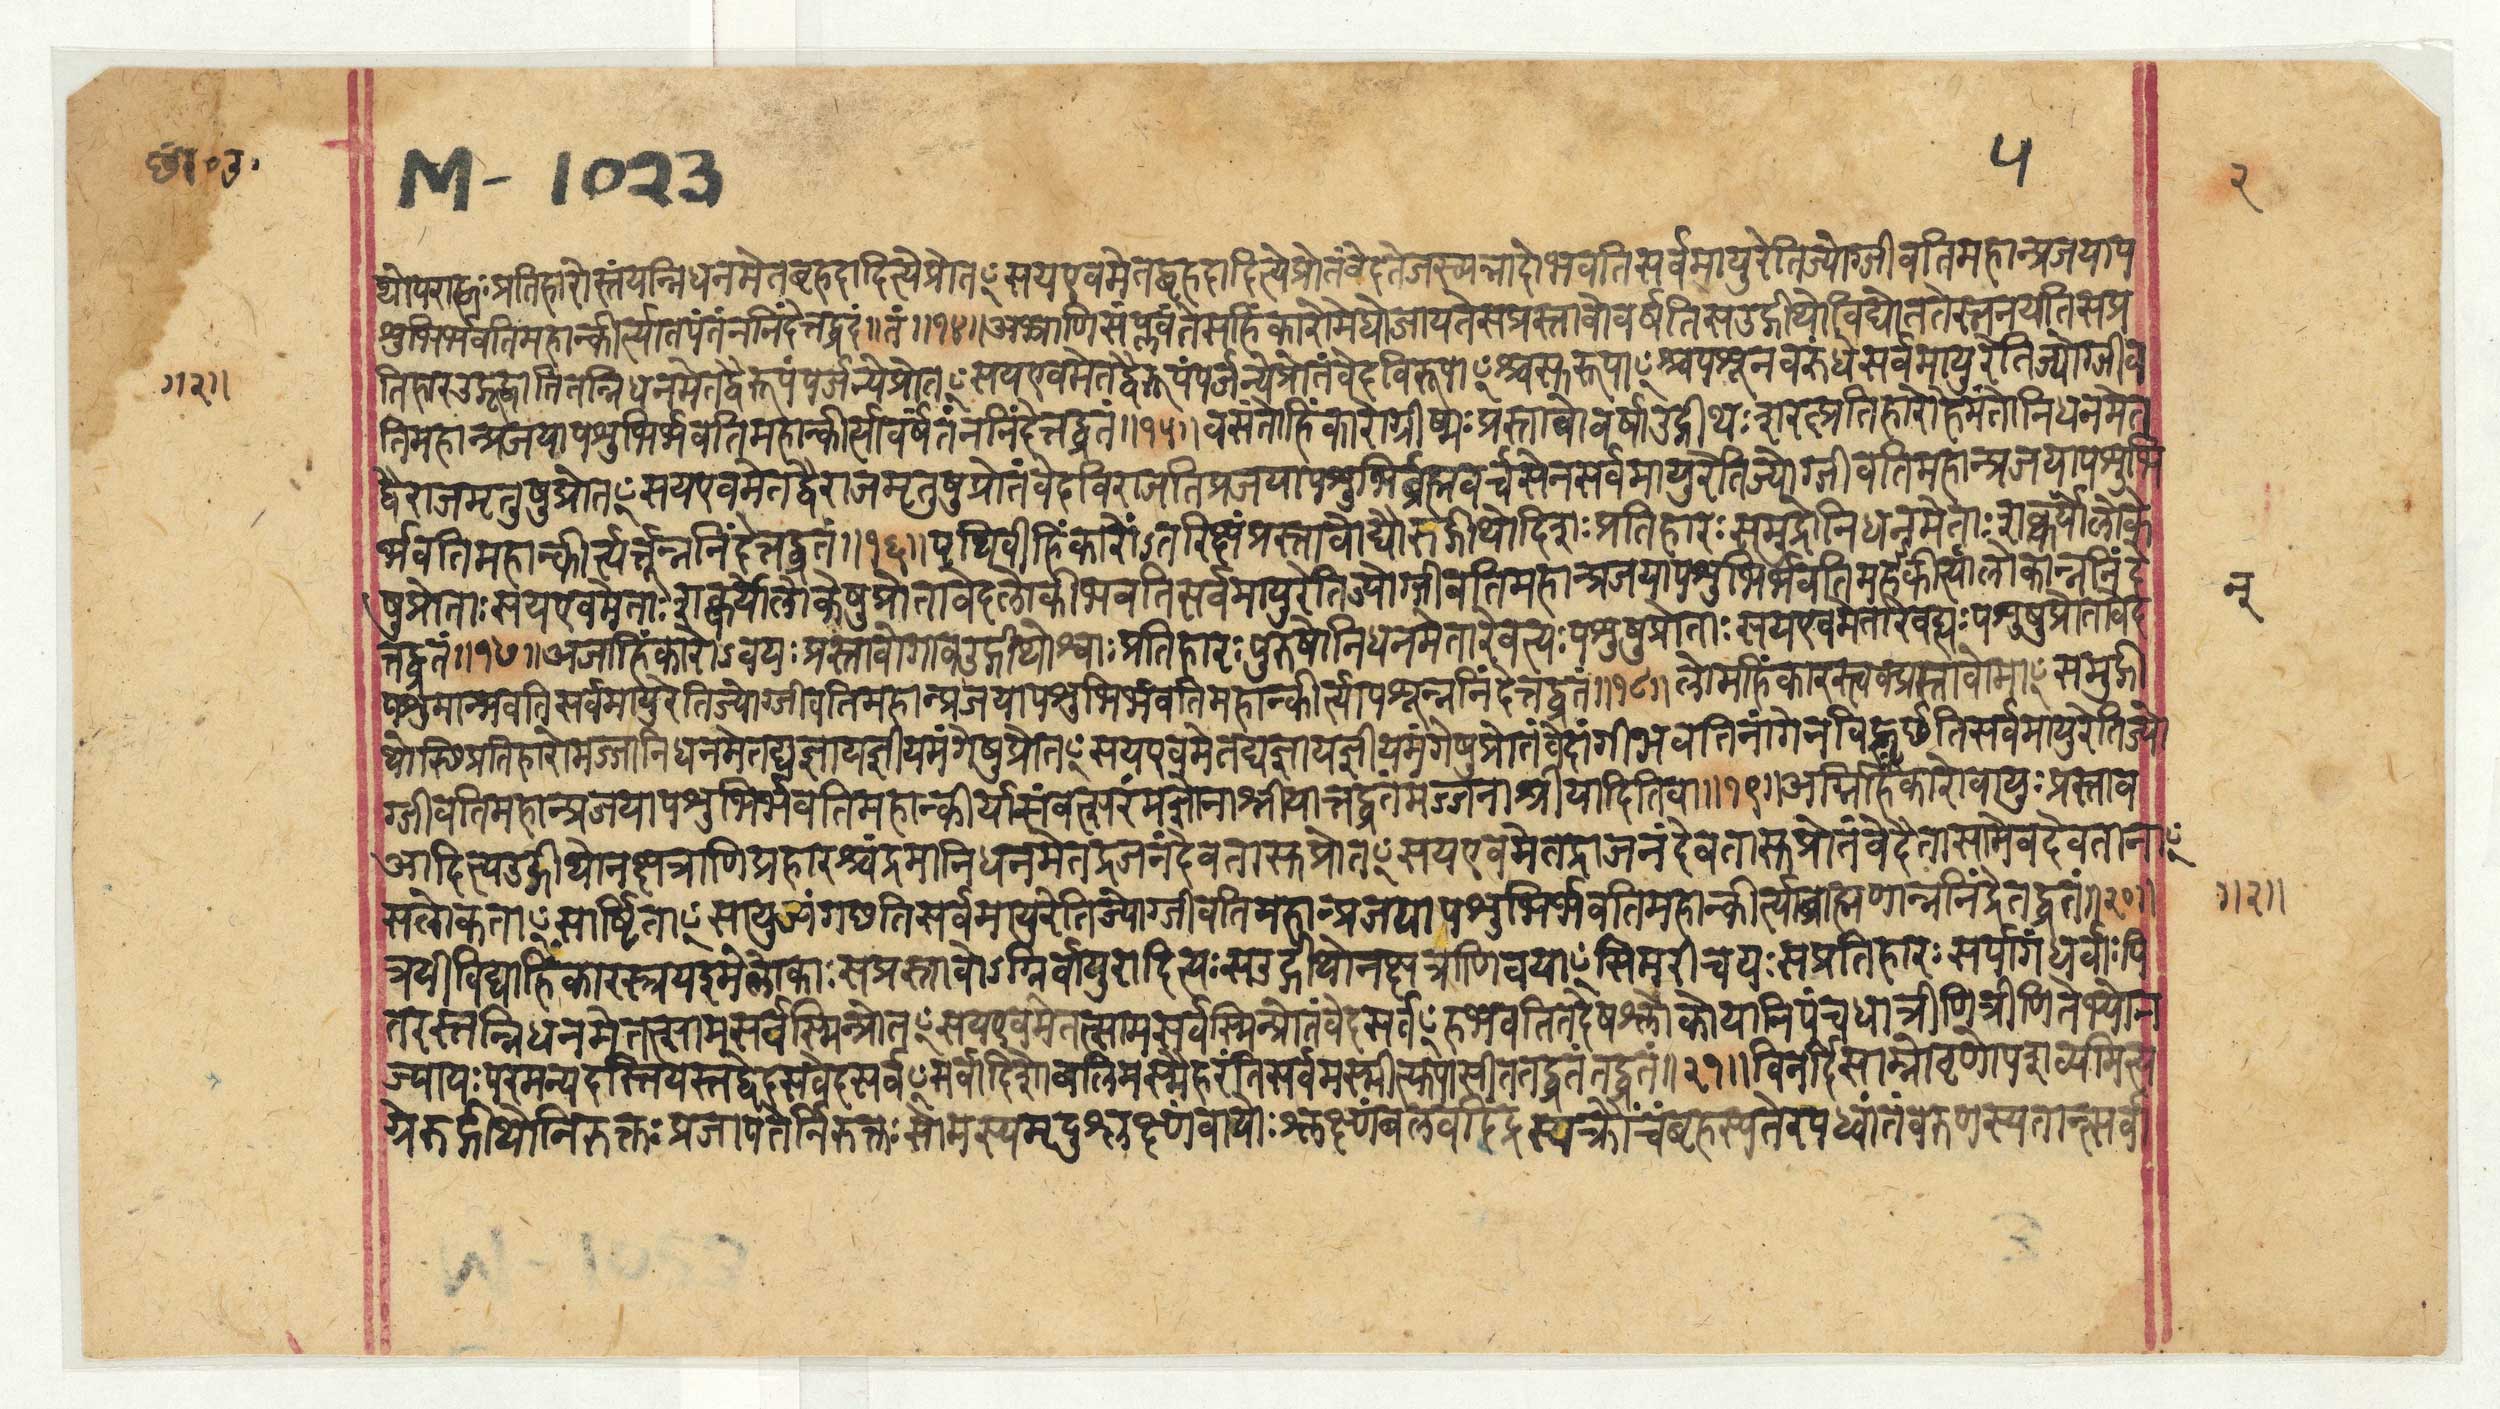 छां०उ०
M-1023
५
२
थोपराह्णःप्रतिहारोस्तंयन्निधनमेतबृहदादित्येप्रोतꣳसयएवमेतद्बृहदादित्येप्रोतंवेदतेजस्व्यन्नादोभवतिसर्वमायुरेतिज्योग्जीवतिमहान्प्रजयाप
शुभिर्भवतिमहान्कीर्त्यातपंतंननिंदेत्तद्व्रदं॥तं॥॥१४॥अभ्राणिसंप्लवंतेसहिंकारोमेघोजायतेसप्रस्तावोवर्षतिसउद्गीथोविद्योततेस्तनयतिसप्र
॥२॥
तिहारउद्गृह्णातितन्निधनमेतद्वैरूपंपर्जन्येप्रोतꣳसयएवमेतद्वैरूपंपर्जन्येप्रोतंवेदविरूपाꣳश्चसुरूपाꣳश्चपशूनवरुंधेसर्वमायुरेतिज्योग्जीव
तिमहान्प्रजयापशुभिर्भवतिमहान्कीर्त्यावर्षंतंननिंदेत्तद्व्रतं॥१५॥वसंतोहिंकारोग्रीष्मःप्रस्तावोवर्षाउद्गीथःशरत्प्रतिहारोहेमंतोनिधनमेत
द्वैराजमृतुषुप्रोतꣳसयएवमेतद्वैराजमृतुषुप्रोतंवेदविराजतिप्रजयापशुभिर्ब्रह्मवर्चसेनसर्वमायुरेतिज्योग्जीवतिमहान्प्रजयापशुभि
र्भवतिमहान्कीर्त्यर्त्तून्ननिंदेत्तद्व्रतं॥१६॥पृथिवीहिंकारोंऽतरिक्षंप्रस्तावोद्यौरुद्गीथोदिशःप्रतिहारःसमुद्रोनिधनमेताःशक्वर्योलोके
षुप्रोताःसयएवमेताःशक्वर्योलोकेषुप्रोतावेदलोकीभवतिसर्वमायुरेतिज्योग्जीवतिमहान्प्रजयापशुभिर्भवतिमहकीर्त्यालोकान्ननिंदे
न्
त्तद्व्रतं॥१७॥अजाहिंकारोऽवयःप्रस्तावोगावउद्गीथोश्वाःप्रतिहारःपुरुषोनिधनमेतारेवत्यःपशुषुप्रोताःसयएवमेतारेवत्यःपशुषुप्रोतावेद
पशुमान्भवतिसर्वमायुरेतिज्योग्जीवतिमहान्प्रजयापशुभिर्भवतिमहान्कीर्त्यापशून्ननिंदेत्तद्व्रतं॥१८॥लोमहिंकारस्त्वक्प्रस्तावोमाꣳसमुद्गी
थोस्थिप्रतिहारोमज्जानिधनमेतद्यज्ञायज्ञीयमंगेषुप्रोतꣳसयएवमेतद्यज्ञायज्ञीयमंगेषुप्रोतंवेदांगीभवतिनांगेनविहूर्छतिसर्वमायुरेतिज्यो
ग्जीवतिमहान्प्रजयापशुभिर्भवतिमहान्कीर्त्यासंवत्सरंमज्ञोनाश्नीयात्तद्व्रतंमज्ज्ञोनाश्नीयादितिवा॥१९॥अग्निर्हिंकारोवायुःप्रस्ताव
आदित्यउद्गीथोनक्षत्राणिप्रहारश्चंद्रमानिधनमेतद्रजनंदेवतासुप्रोतꣳसयएवमेतद्राजनंदेवतासुप्रोतंवेदैतासामेवदेवतानाꣳ
सलोकताꣳसार्ष्टिताꣳसायुज्यंगछतिसर्वमायुरेतिज्योग्जीवतिमहान्प्रजयापशुभिर्भवतिमहान्कीर्त्याब्राह्मणान्ननिंदेतद्व्रतं॥२०॥
॥२॥
त्रयीविद्याहिंकारस्त्रयइमेलोकाःसप्रस्तावोऽग्निर्वायुरादित्यःसउद्गीथोनक्षत्राणिवयाꣳसिमरीचयःसप्रतिहारःसर्पागंधर्वाःपि
तरस्तन्निधनमेतत्सामसर्वस्मिन्प्रोतꣳसयएवमेतत्सामसर्वस्मिन्प्रोतंवेदसर्वꣳहभवतितदेषश्लोकोयानिपंचधात्रीणित्रीणितेभ्योन
ज्यायःपरमन्यदस्तियस्तद्वेदसवेदसर्वꣳसर्वादिशोबलिमस्मैहरंतिसर्वमस्मीत्युपासीततद्व्रतंतद्व्रतं॥२१॥विनर्दिसाम्नोवृणेपशव्यमित्य
ग्नेरुद्गीथोनिरुक्तःप्रजापतेर्निरुक्तःसोमस्यमृदुश्लक्ष्णंवायोःश्लक्ष्णंबलवदिंद्रस्यक्रौंचंबृहस्पतेरपध्वांतंवरुणस्यतान्सर्वा